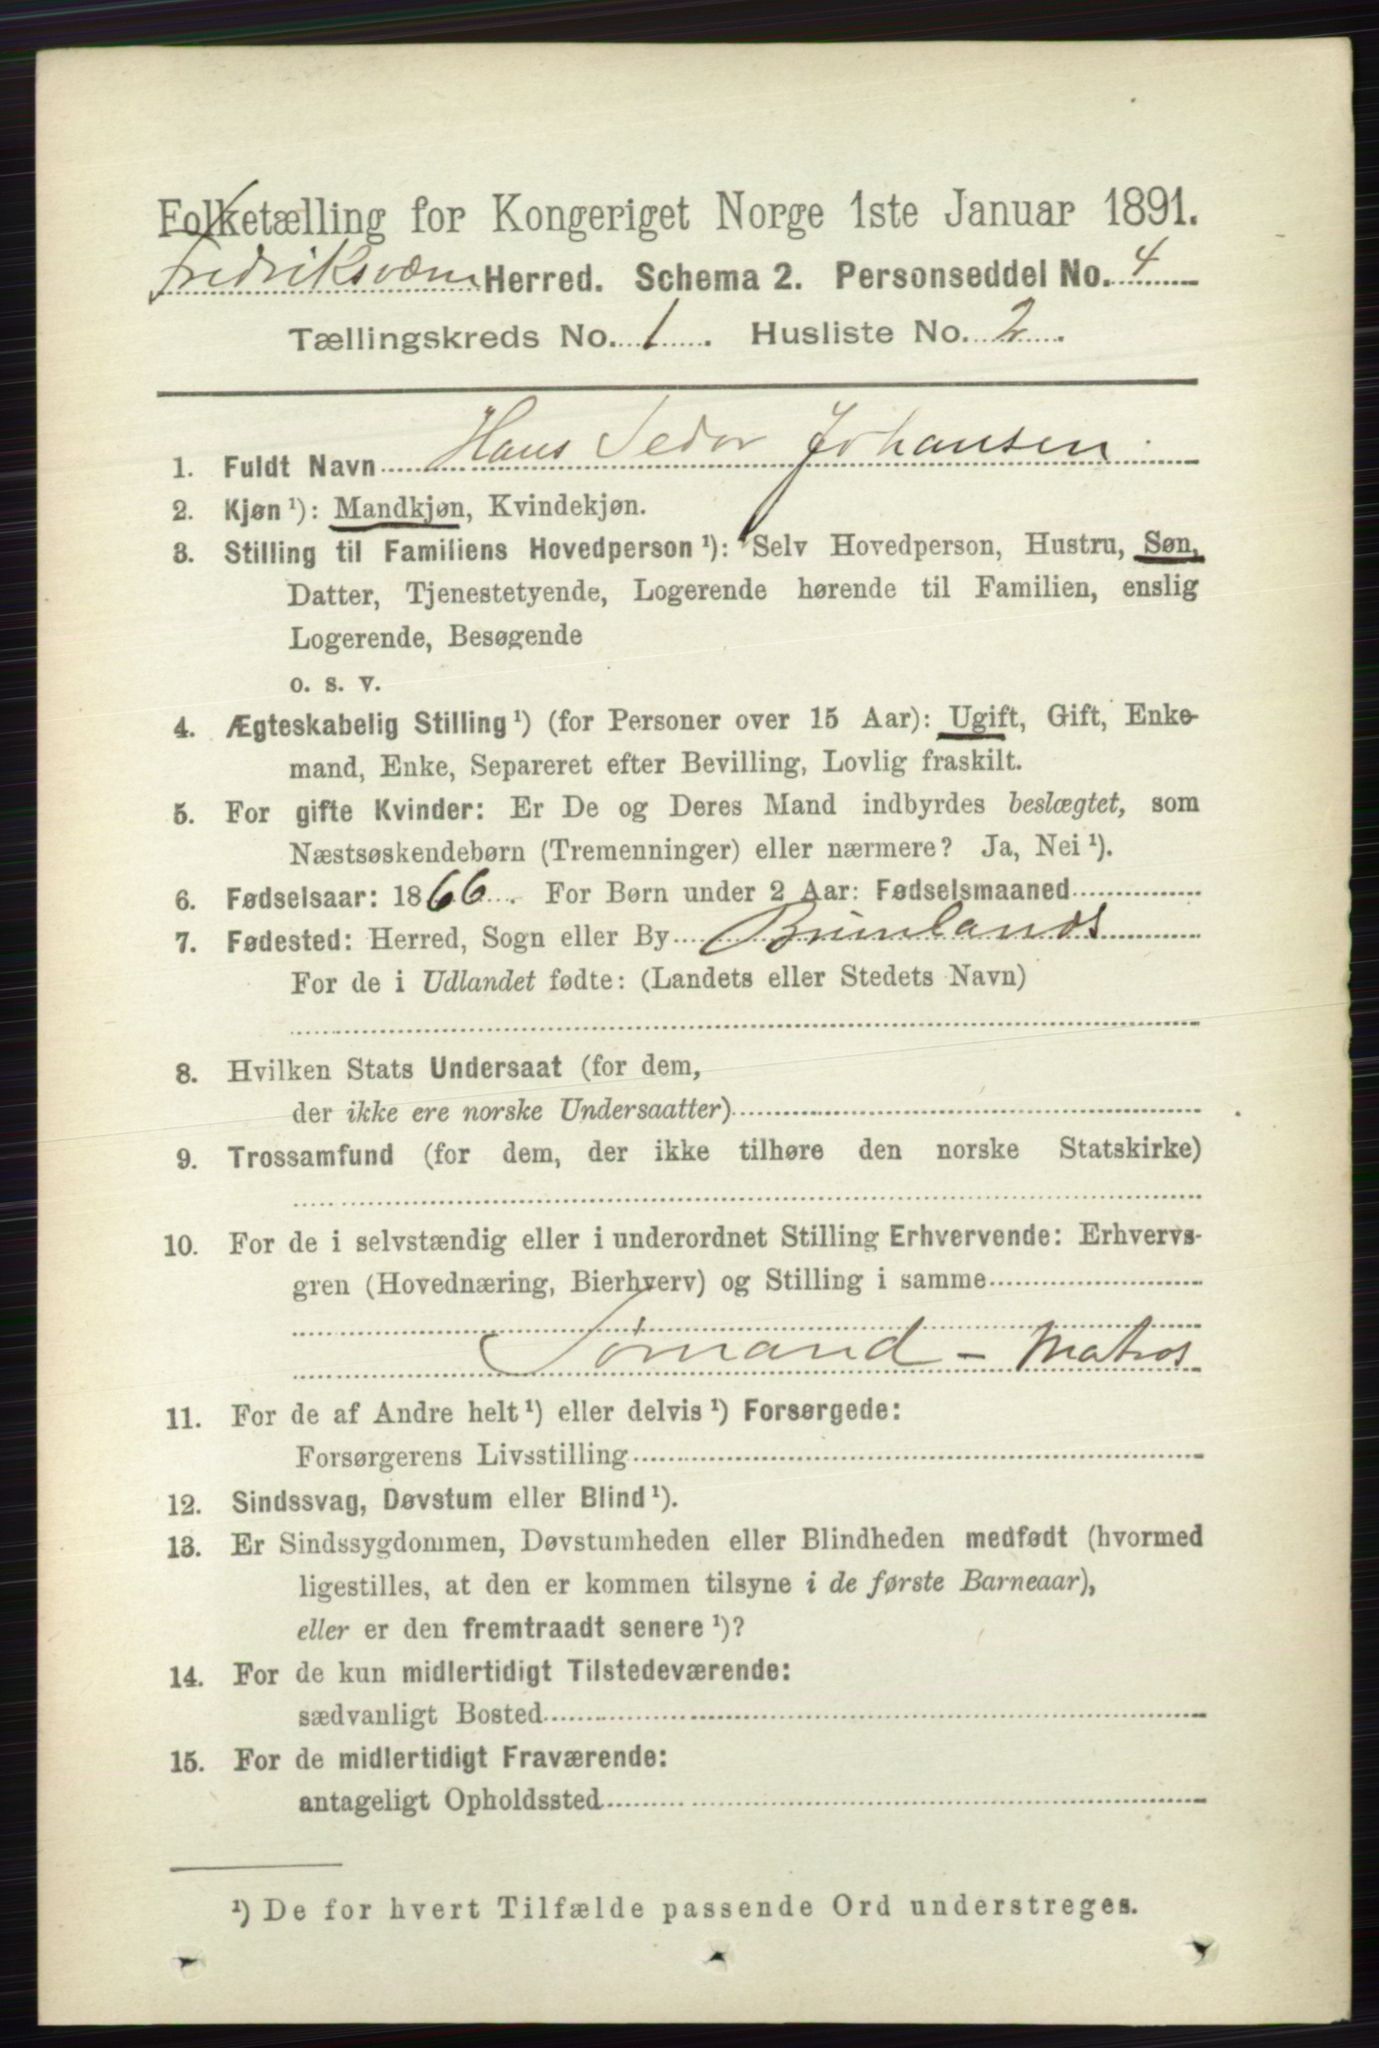 Folketælling for Kongeriget Norge 1ste Januar 1891.
Fredriksværn Herred. Schema 2. Personseddel No. 4
Tællingskreds No. 1. Husliste No. 2.
1. Fuldt Navn Hans Johansen
2. Kjøn ¹): Mandkjøn, Kvindekjøn.
3. Stilling til Familiens Hovedperson ¹): Selv Hovedperson, Hustru, Søn,
Datter, Tjenestetyende, Logerende hørende til Familien, enslig
Logerende, Besøgende
o. s. v.
4. Ægteskabelig Stilling ¹) (for Personer over 15 Aar): Ugift, Gift, Enke-
mand, Enke, Separeret efter Bevilling, Lovlig fraskilt.
5. For gifte Kvinder: Er De og Deres Mand indbyrdes beslægtet, som
Næstsøskendebørn (Tremenninger) eller nærmere? Ja, Nei ¹).
6. Fødselsaar: 1866. For Børn under 2 Aar: Fødselsmaaned
7. Fødested: Herred, Sogn eller By Brunlands
For de i Udlandet fødte: (Landets eller Stedets Navn)
8. Hvilken Stats Undersaat (for dem,
der ikke ere norske Undersaatter)
9. Trossamfund (for dem, der ikke tilhøre den norske Statskirke)
10. For de i selvstændig eller i underordnet Stilling Erhvervende: Erhvervs-
gren (Hovednæring, Bierhverv) og Stilling i samme
Sømand - Matros
11. For de af Andre helt ¹) eller delvis ¹) Forsørgede:
Forsørgerens Livsstilling
12. Sindssvag, Døvstum eller Blind ¹).
13. Er Sindssygdommen, Døvstumheden eller Blindheden medfødt (hvormed
ligestilles, at den er kommen tilsyne i de første Barneaar),
eller er den fremtraadt senere ¹)?
14. For de kun midlertidigt Tilstedeværende:
sædvanligt Bosted
15. For de midlertidigt Fraværende:
antageligt Opholdssted
¹) De for hvert Tilfælde passende Ord understreges.